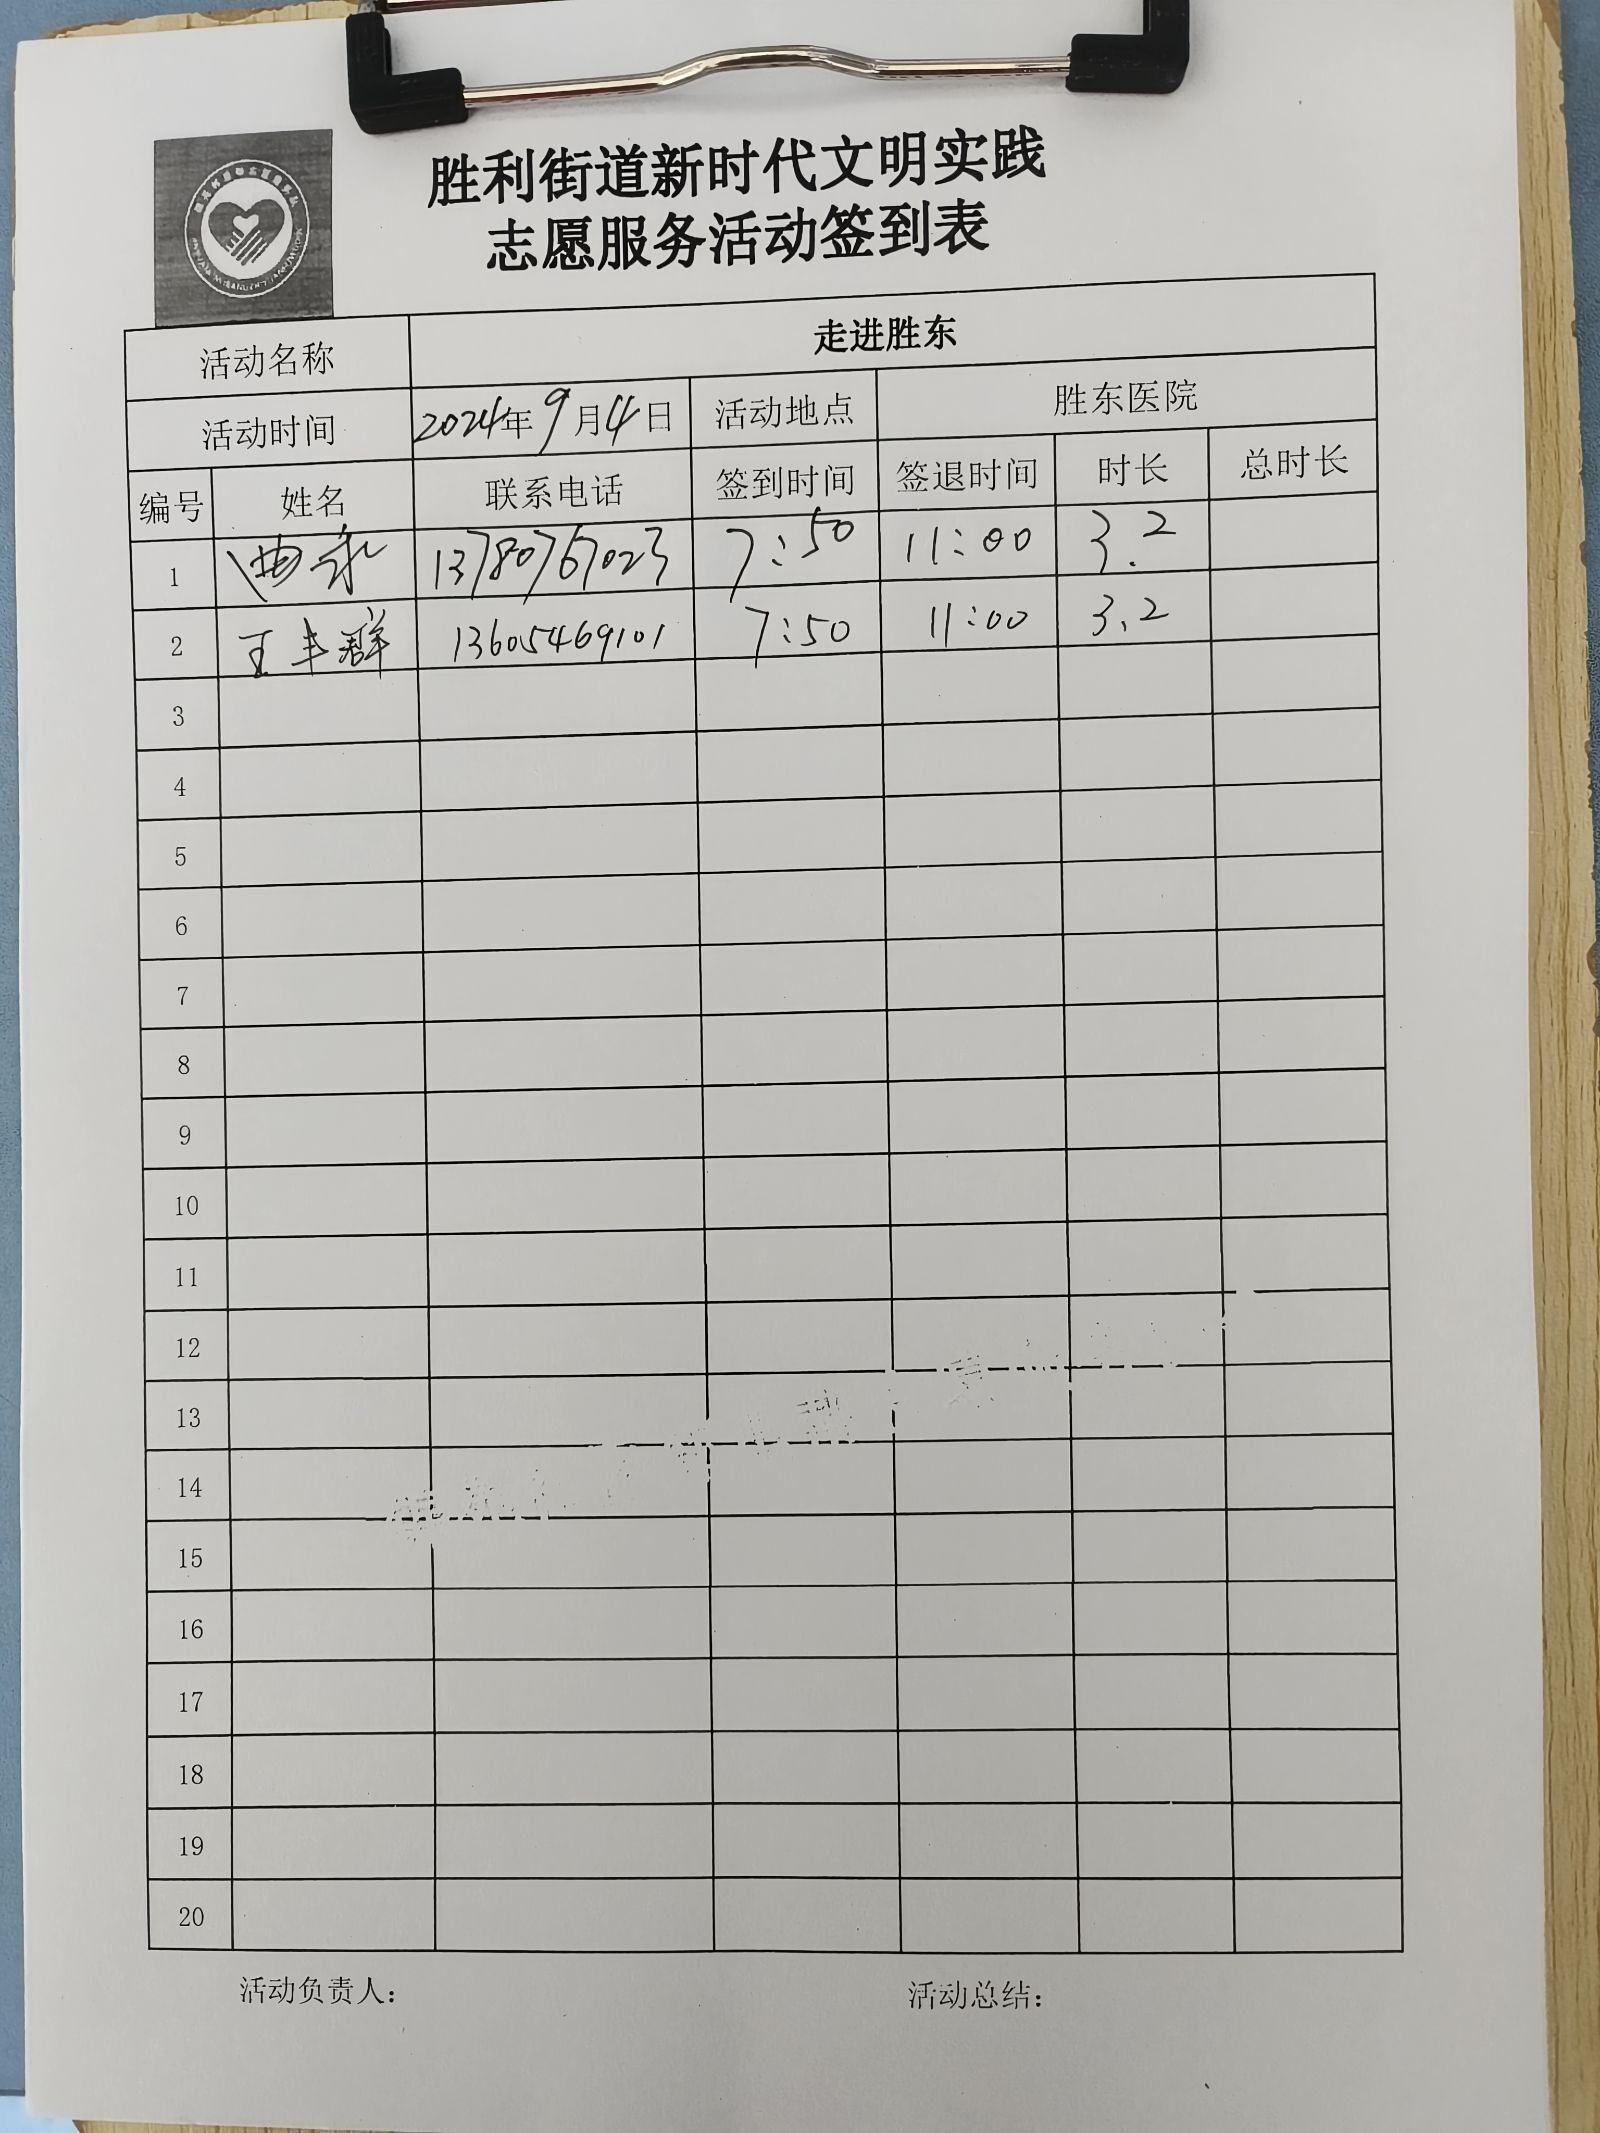 胜利街道新时代文明实践
志愿服务活动签到表
活动名称 走进胜东
活动时间 2024年9月4日 活动地点 胜东医院
编号 姓名 联系电话 签到时间 签退时间 时长 总时长
1 曲永 13780767023 7:50 11:00 3.2
2 王丰群 13605469101 7:50 11:00 3.2
3
4
5
6
7
8
9
10
11
12
13
14
15
16
17
18
19
20
活动负责人： 活动总结：